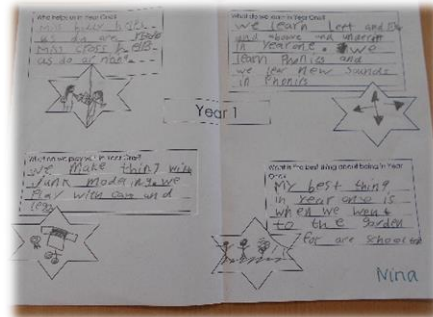 Who helps us in Year One?
Miss helps
us do are
Miss Cross help
us do are
What do we learn in Year One?
we learn Left and
and above and
in Year one. we
learn Phonics and
we lear New Sounds
in Phonics
Year 1
What can we play with in Year One?
we make thing with
Junk modeling. we
Play with and
lego
What is the best thing about being in Year
One?
My best thing
in Year one is
when we went
to the garden
for are school
Nina